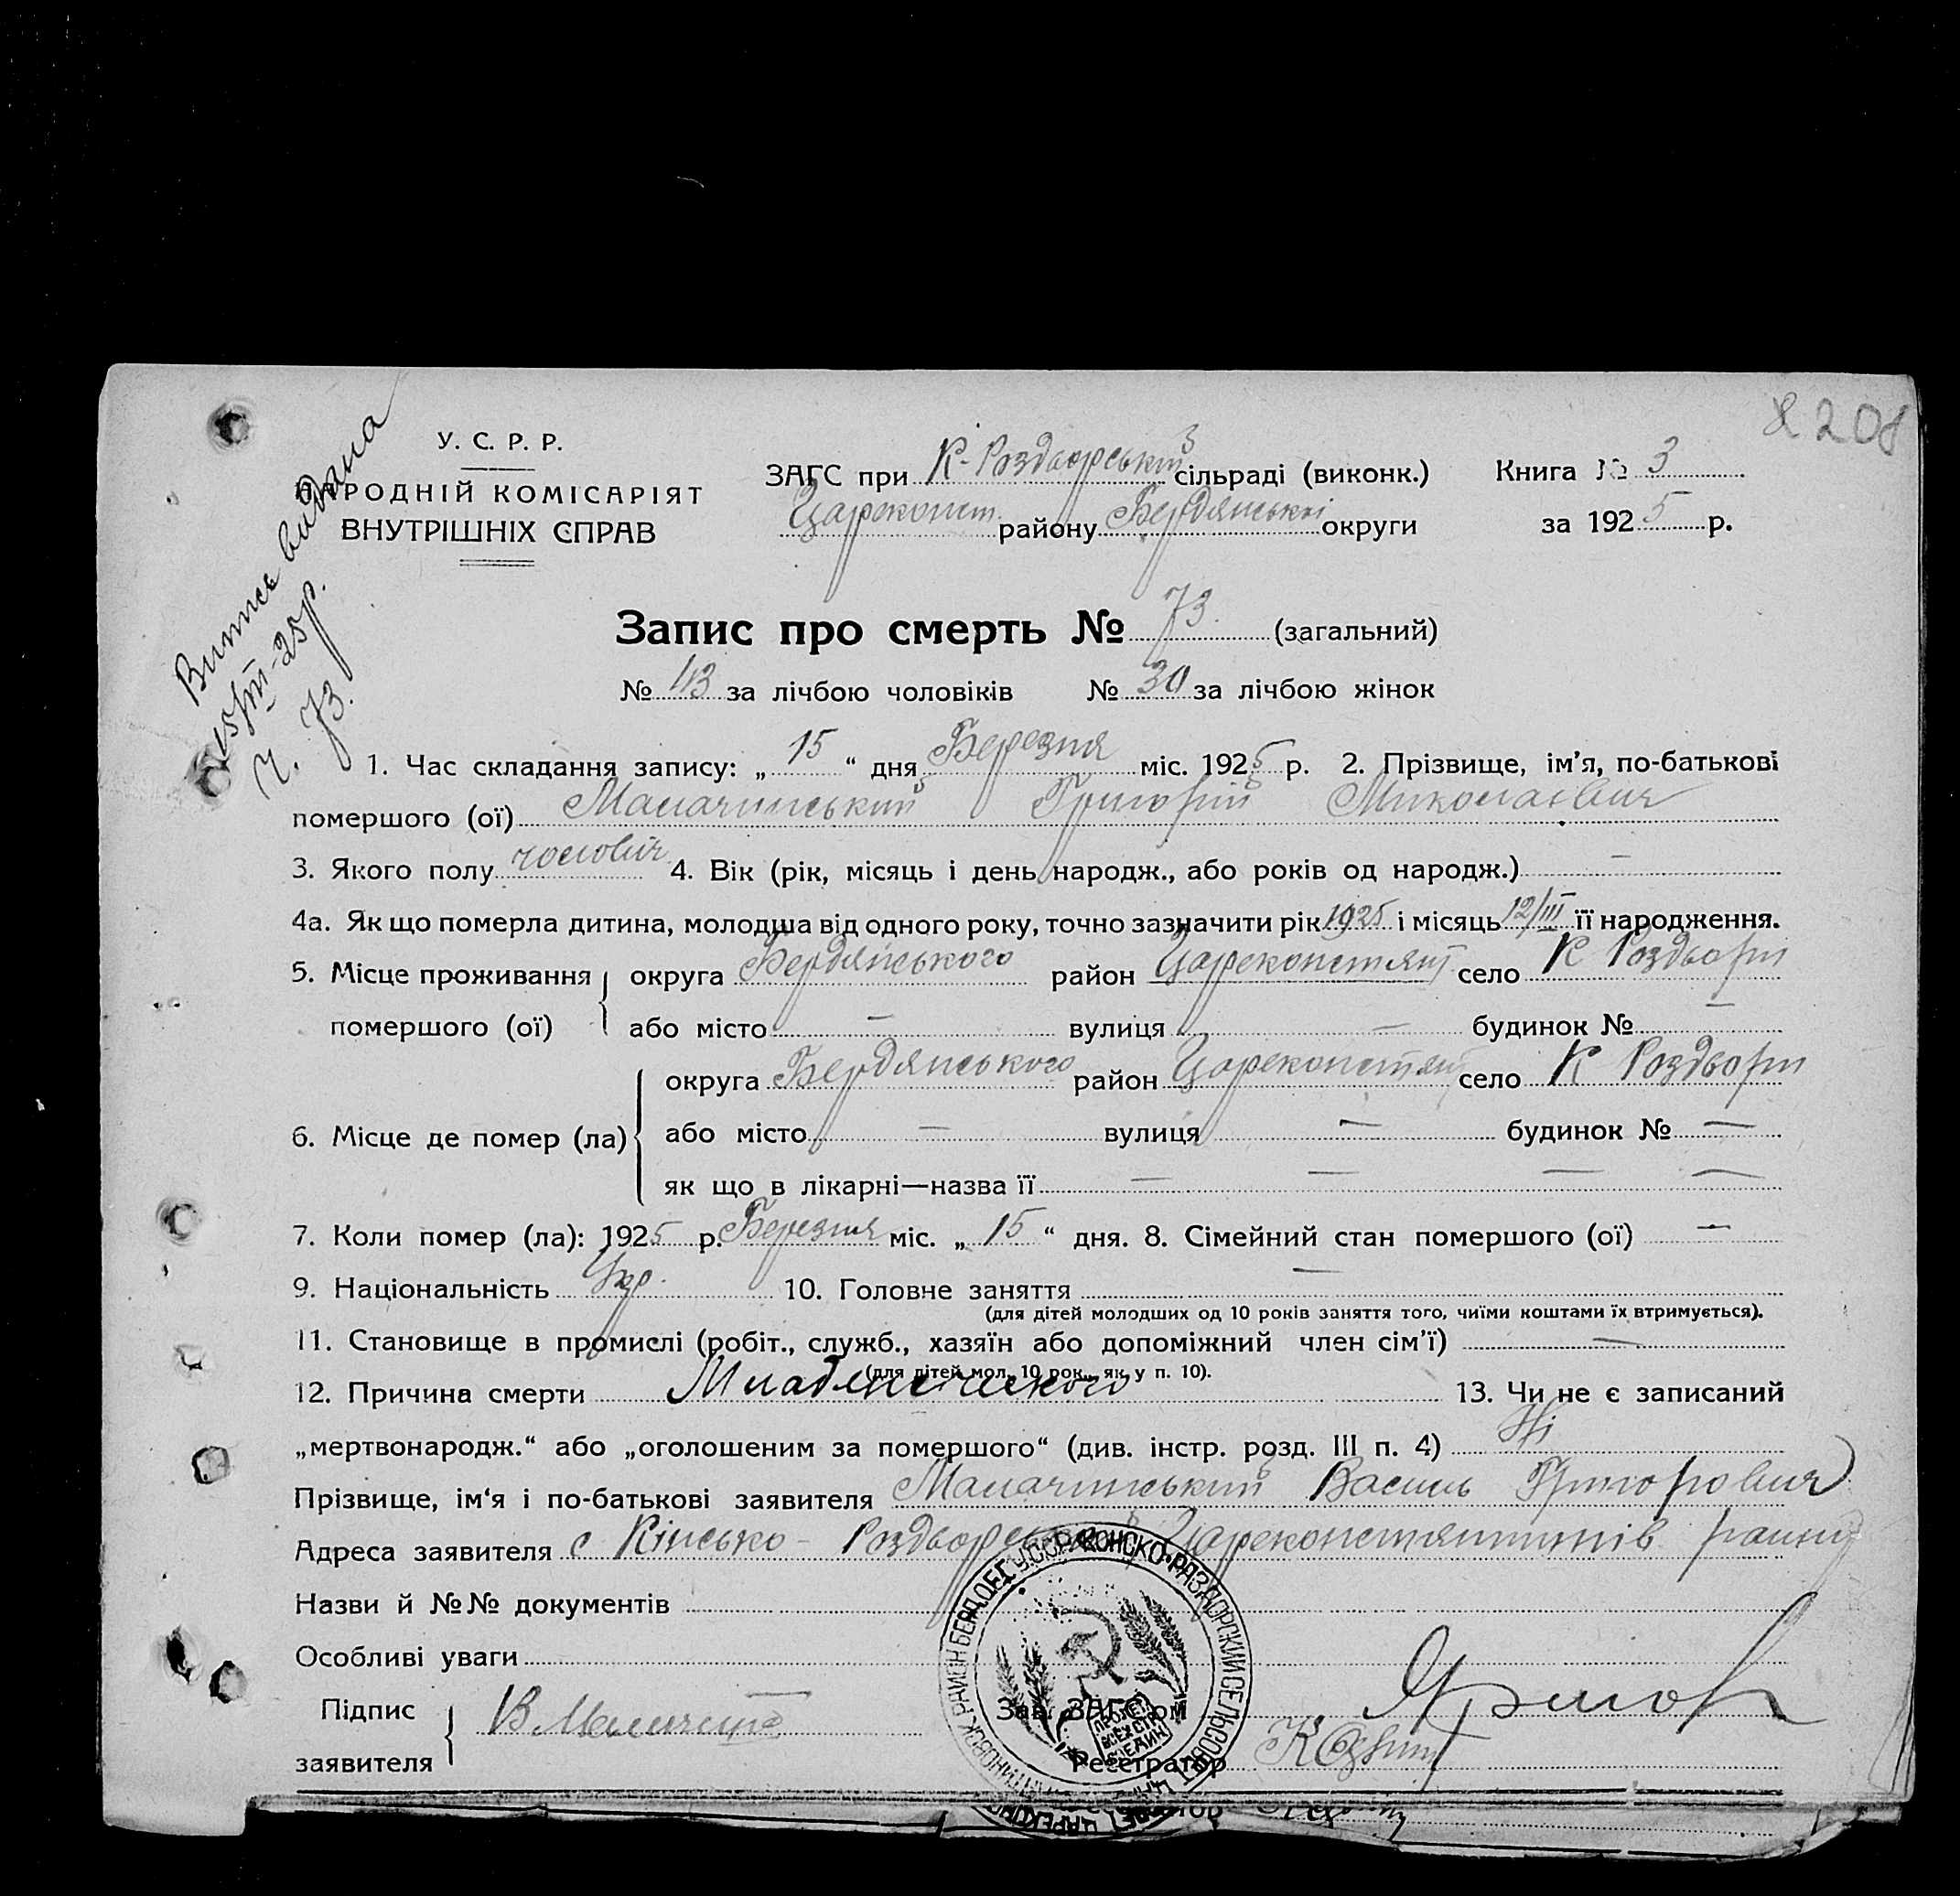 208
Витяг видана
15/III-25р.
Ч. 73.
У. С. Р. Р.
НАРОДНІЙ КОМІСАРІЯТ
ВНУТРІШНІХ СПРАВ
ЗАГС при К-Роздорський сільраді (виконк.) Книга № 3
Цареконст. району Бердянської округи за 1925 р.
Запис про смерть № 73. (загальний)
№ 43 за лічбою чоловіків № 30 за лічбою жінок
1. Час складання запису: „15“ дня Березня міс. 1925 р. 2. Прізвище, ім'я, по-батькові
помершого (ої) Малачинський Григорій Миколаєвич
3. Якого полу чоловіч 4. Вік (рік, місяць і день народж., або років од народж.) —
4а. Як що померла дитина, молодша від одного року, точно зазначити рік 1925 і місяць 12/III її народження.
5. Місце проживання округа Бердянського район Цареконстянт село К Роздори
помершого (ої) або місто — вулиця — будинок № —
округа Бердянського район Цареконстянт село К Роздори
6. Місце де помер (ла) або місто — вулиця — будинок № —
як що в лікарні—назва її — — — —
7. Коли помер (ла): 1925 р. Березня міс. „15“ дня. 8. Сімейний стан помершого (ої) —
9. Національність Укр. 10. Головне заняття —
(для дітей молодших од 10 років заняття того, чиїми коштами їх втримується).
11. Становище в промислі (робіт., служб., хазяїн або допоміжний член сім'ї) —
(для дітей мол. 10 рок., як у п. 10).
12. Причина смерти Младенческого 13. Чи не є записаний
„мертвонародж.“ або „оголошеним за помершого“ (див. інстр. розд. III п. 4) Ні
Прізвище, ім'я і по-батькові заявителя Малачинський Василь Григорович
Адреса заявителя с Кінсько-Роздорської Цареконстянтинів району
Назви й №№ документів
Особливі уваги
Підпис
заявителя
Зав. ЗАГС'ом
Реєстратор